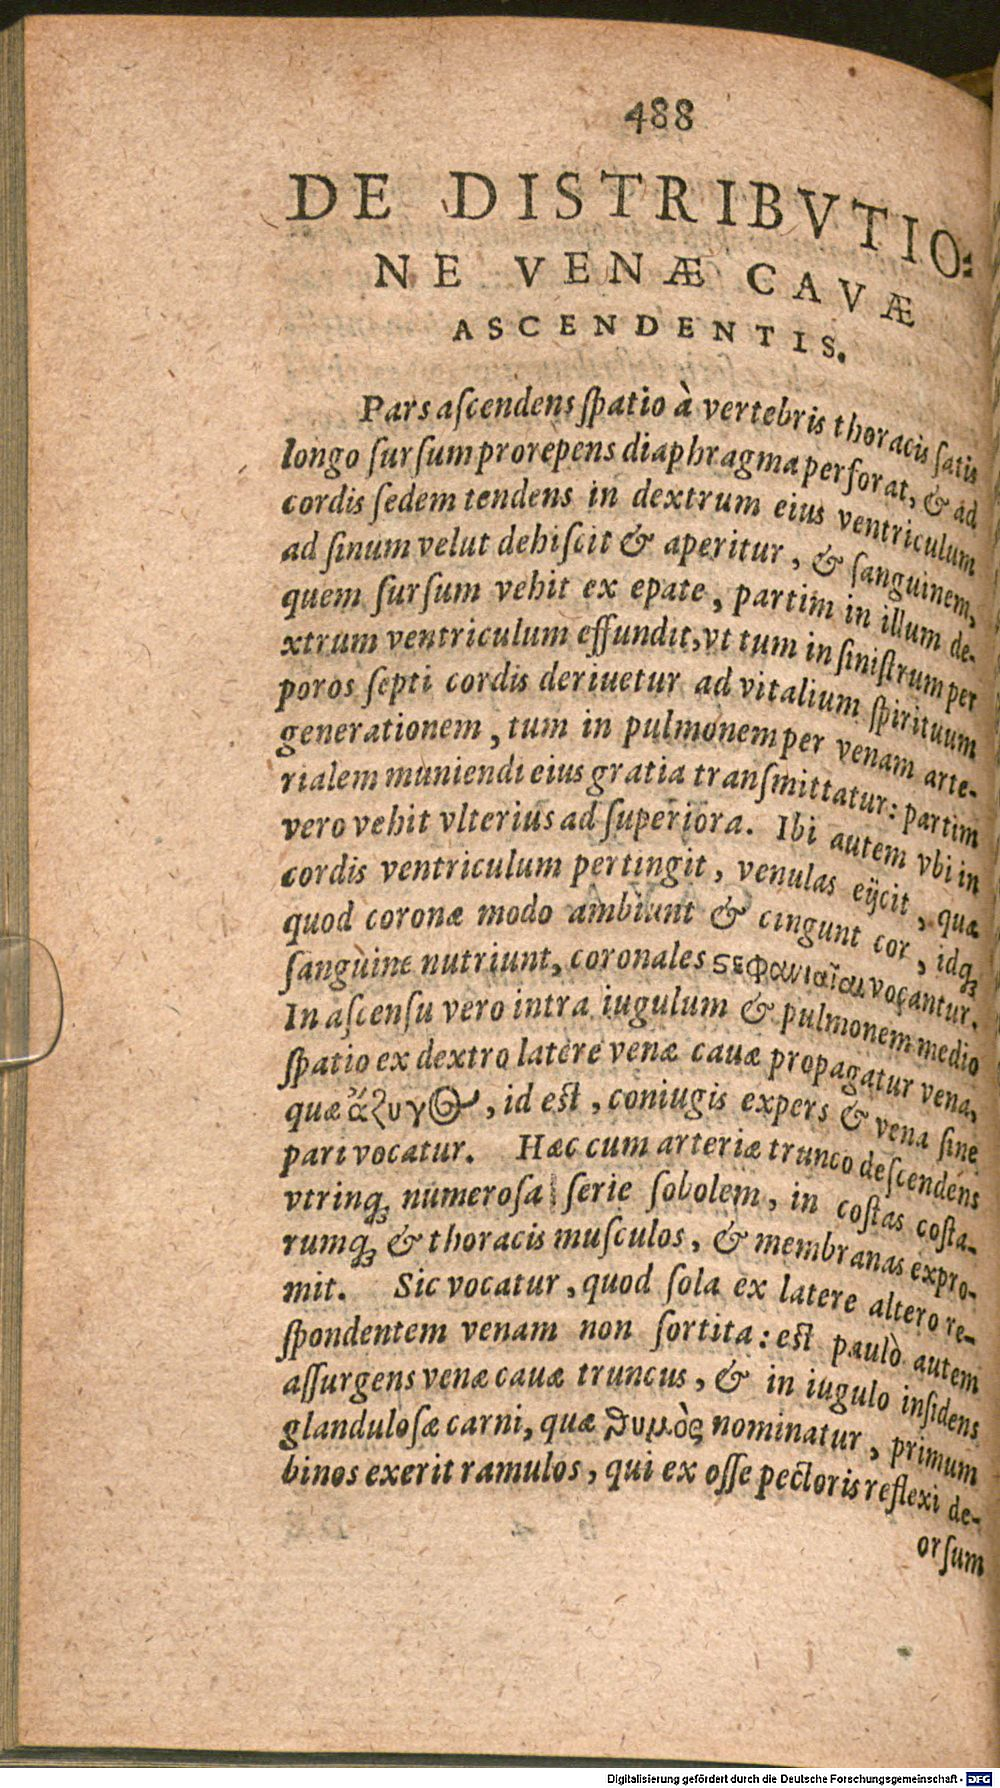 488
DE DISTRIBVTIO-
NE VENÆ CAVÆ
ASCENDENTIS.
Pars aſcendens ſpatio à vertebris thoracis ſatis
longo ſurſum prorepens diaphragma perforat, & ad
cordis ſedem tendens in dextrum eius ventriculum
ad ſinum velut dehiſcit & aperitur, & ſanguinem,
quem ſurſum vehit ex epate, partim in illum de-
xtrum ventriculum effundit, vt tum in ſiniſtrum per
poros ſepti cordis deriuetur ad vitalium ſpirituum
generationem, tum in pulmonem per venam arte-
rialem muniendi eius gratia tranſmittatur: partim
vero vehit vlterius ad ſuperiora. Ibi autem vbi in
cordis ventriculum pertingit, venulas eijcit, quæ
quod coronæ modo ambiunt & cingunt cor, idq́;
ſanguine nutriunt, coronales ϛεφανιαῖαι vocantur.
In aſcenſu vero intra iugulum & pulmonem medio
ſpatio ex dextro latere venæ cauæ propagatur vena,
quæ ἄζυγος, id eſt, coniugis expers & vena ſine
pari vocatur. Hæc cum arteriæ trunco deſcendens
vtrinq; numeroſa ſerie ſobolem, in coſtas coſta-
rumq; & thoracis muſculos, & membranas expro-
mit. Sic vocatur, quod ſola ex latere altero re-
ſpondentem venam non ſortita: eſt paulò autem
aſſurgens venæ cauæ truncus, & in iugulo inſidens
glanduloſæ carni, quæ ϑυμὸς nominatur, primum
binos exerit ramulos, qui ex oſſe pectoris reflexi de-
orſum
Digitalisierung gefördert durch die Deutsche Forschungsgemeinschaft - DFG